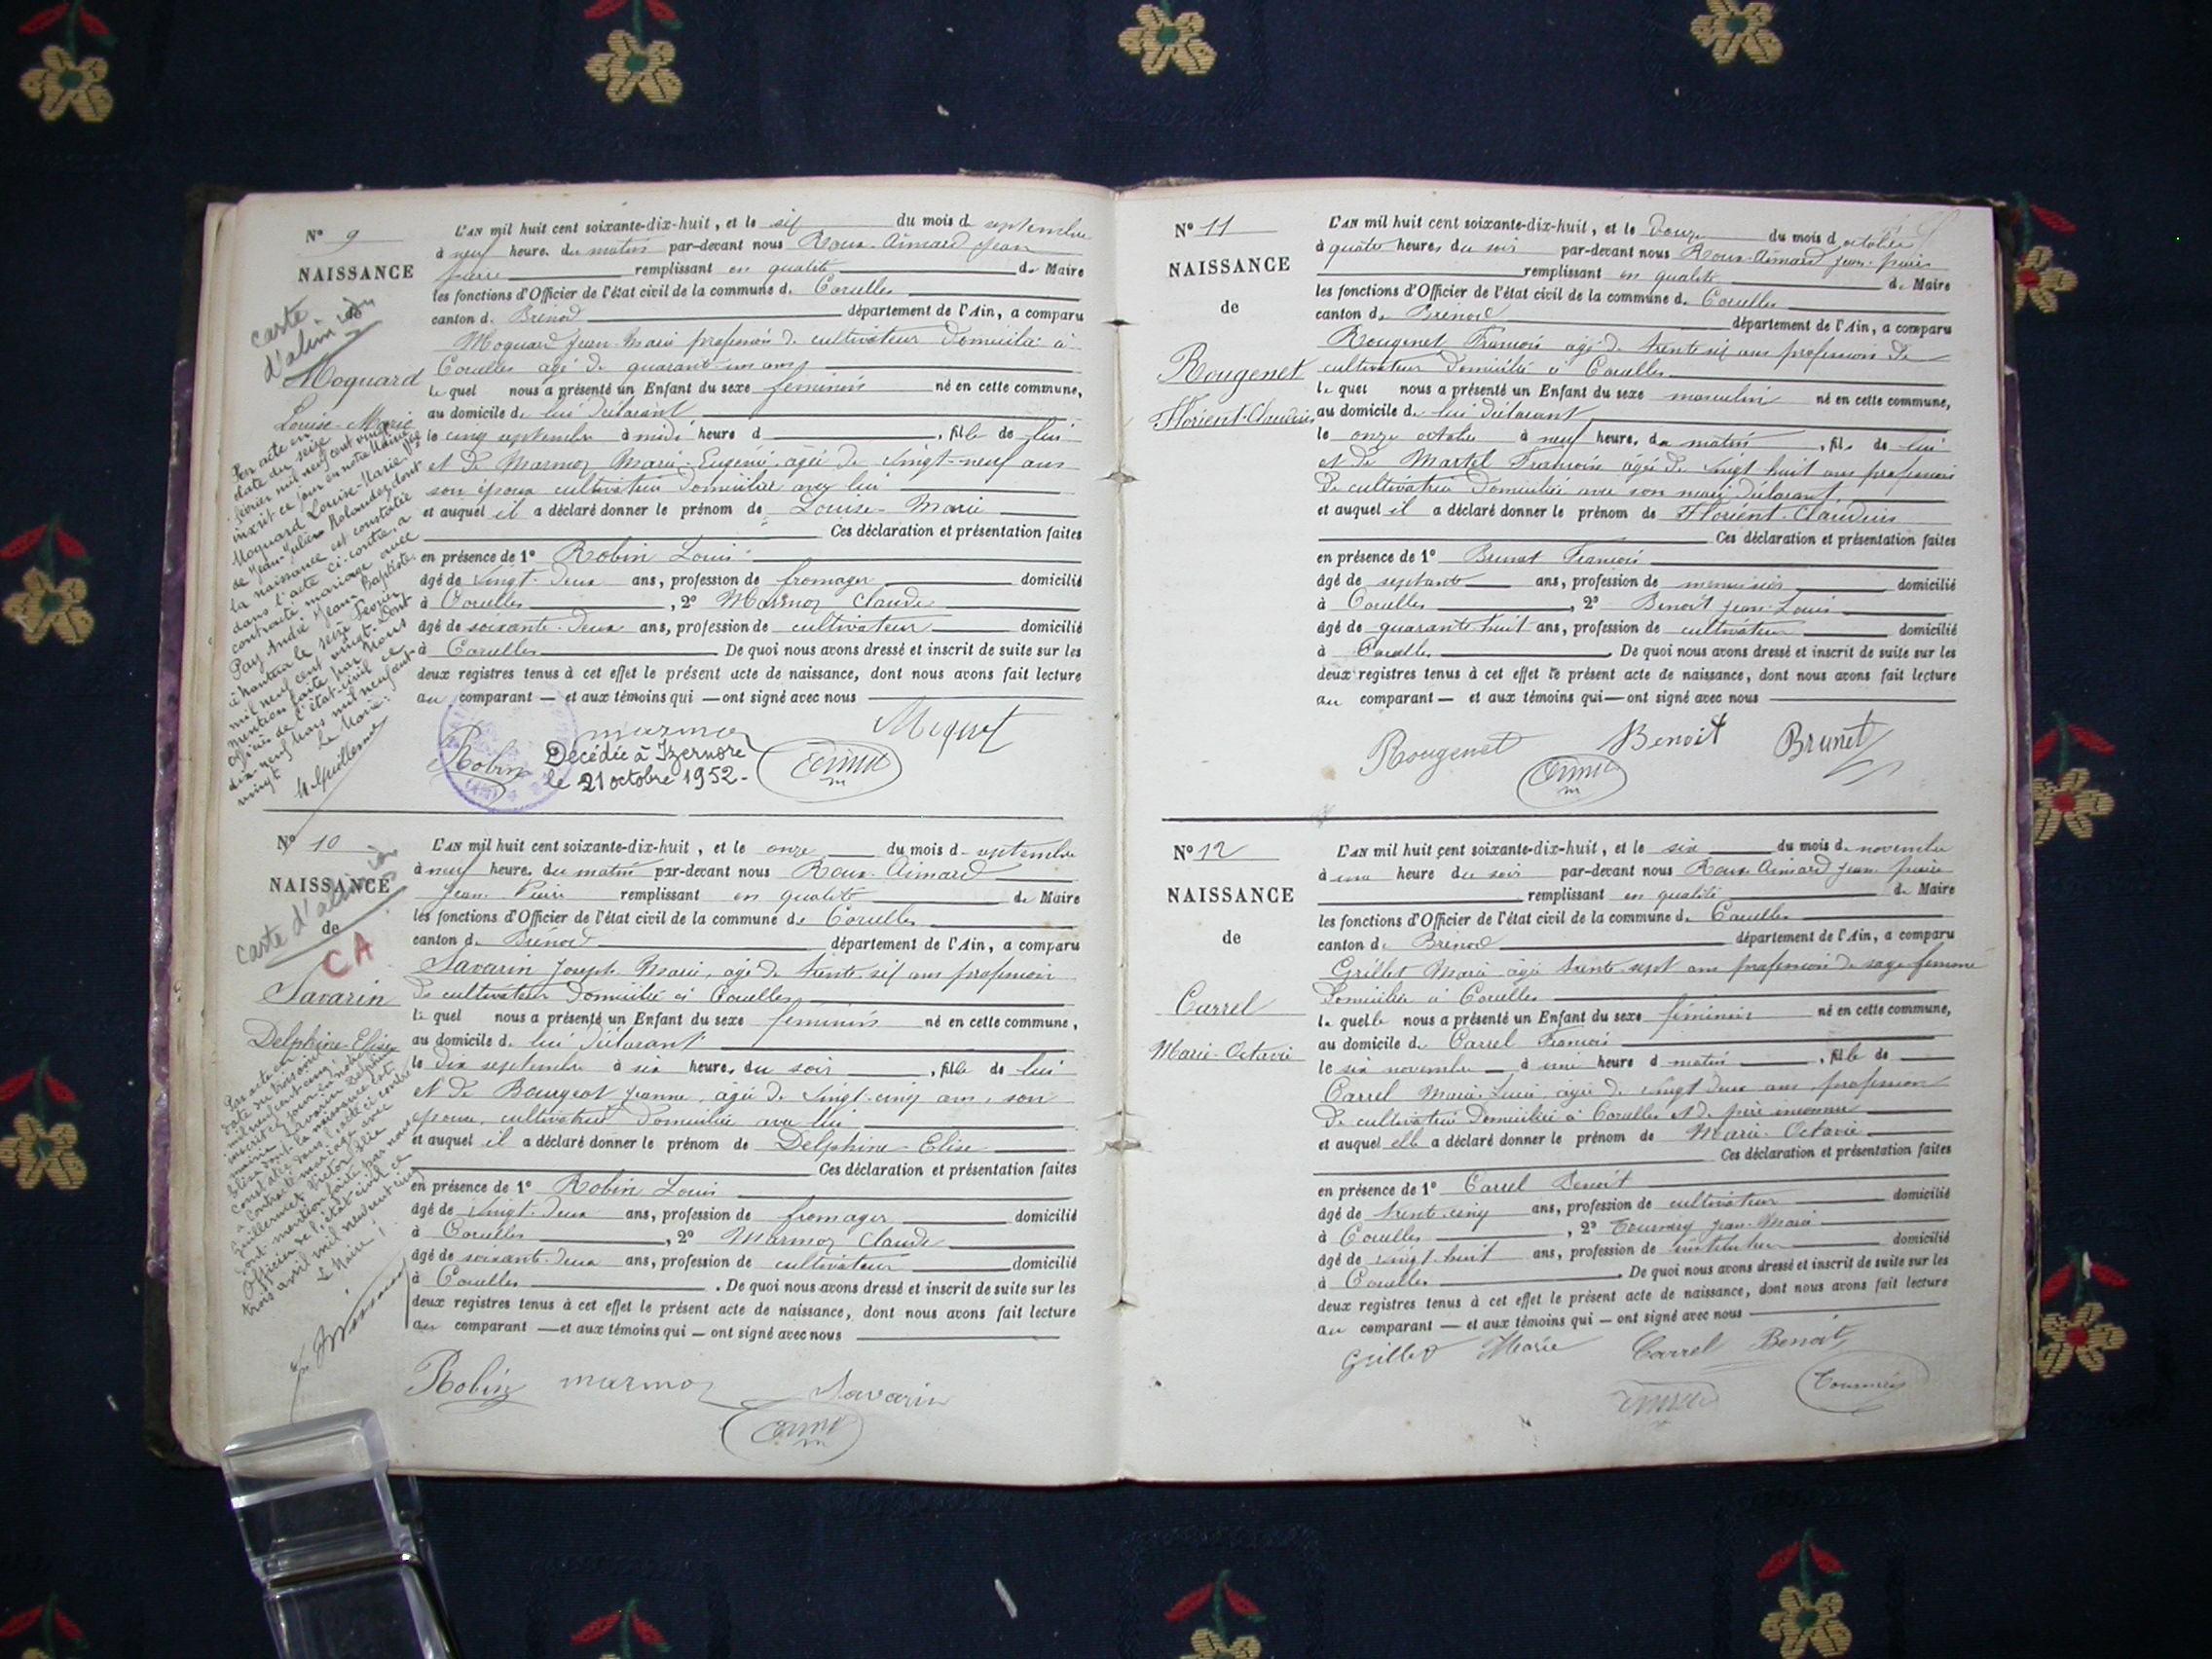 N° 9
NAISSANCE
carte
d'alim ion
Moquard
Louise-Marie
Par acte en
date du seize
février mil neuf cent vingt
inscrit ce jour en notre Mairie,
Moquard Louise-Marie, fille
de Jean-Julien Rolandez, dont
la naissance est constatée
dans l'acte ci-contre, a
contracté mariage avec
Pay André Jean Baptiste,
à Nantua le seize Février
mil neuf cent vingt. Dont
mention faite par Nous
officier de l'état-civil ce
dix-neuf Mars mil neuf cent
vingt
Le Maire:
L'AN mil huit cent soixante-dix-huit, et le six du mois d septembre
à neuf heure. du matin par-devant nous Roux-Aimard Jean
pierre remplissant en qualité de Maire
les fonctions d'Officier de l'état civil de la commune d. Corcelles
canton d. Brénod département de l'Ain, a comparu
Moquard Jean-Marie profession de cultivateur domicilié à
Corcelles âgé de quarante-un ans
le quel nous a présenté un Enfant du sexe féminin né en cette commune,
au domicile d. lui déclarant
le cinq septembre à midi heure d , fille de lui
et de Marmoz Marie-Eugénie âgée de vingt-neuf ans
son épouse cultivatrice domiciliée avec lui
et auquel il a déclaré donner le prénom de Louise-Marie
Ces déclaration et présentation faites
en présence de 1° Robin Louis
âgé de vingt-deux ans, profession de fromager domicilié
à Corcelles , 2° Marmoz Claude
âgé de soixante-deux ans, profession de cultivateur domicilié
à Corcelles De quoi nous avons dressé et inscrit de suite sur les
deux registres tenus à cet effet le présent acte de naissance, dont nous avons fait lecture
au comparant — et aux témoins qui — ont signé avec nous
marmoz
Robin
Décédée à Izernore
le 21 octobre 1952.-
N° 10
NAISSANCE
de
carte d'alim ion
CA
Savarin
Delphine-Elise
Par acte en
date du trois avril
mil neuf cent cinq
inscrit ce jour en notre
mairie, Savarin Delphine
Elise dont la naissance est
constatée dans l'acte ci contre
a contracté mariage avec
Guillermet Victor Elie
dont mention faite par nous
Officier de l'état civil ce
trois avril mil neuf cent cinq
Le Maire!
L'AN mil huit cent soixante-dix-huit, et le onze du mois d septembre
à neuf heure. du matin par-devant nous Roux-Aimard
Jean-Pierre remplissant en qualité de Maire
les fonctions d'Officier de l'état civil de la commune de Corcelles
canton d. Brénod département de l'Ain, a comparu
Savarin Joseph-Marie, âgé de trente-six ans profession
de cultivateur domicilié à Corcelles
le quel nous a présenté un Enfant du sexe féminin né en cette commune,
au domicile d. lui déclarant
le dix septembre à six heure. du soir , fille de lui
et de Bourgeot Jeanne, âgée de vingt-cinq ans, son
épouse, cultivatrice domiciliée avec lui
et auquel il a déclaré donner le prénom de Delphine-Elise
Ces déclaration et présentation faites
en présence de 1° Robin Louis
âgé de vingt-deux ans, profession de fromager domicilié
à Corcelles , 2° Marmoz Claude
âgé de soixante-deux ans, profession de cultivateur domicilié
à Corcelles . De quoi nous avons dressé et inscrit de suite sur les
deux registres tenus à cet effet le présent acte de naissance, dont nous avons fait lecture
au comparant — et aux témoins qui — ont signé avec nous
Robin marmoz Savarin
N° 11
NAISSANCE
de
Rougenet
Florient-Claudius
L'AN mil huit cent soixante-dix-huit, et le douze du mois d octobre
à quatre heures du soir par-devant nous Roux-Aimard Jean-pierre
remplissant en qualité de Maire
les fonctions d'Officier de l'état civil de la commune d. Corcelles
canton de Brénod département de l'Ain, a comparu
Rougenet François âgé de trente six ans profession de
cultivateur domicilié à Corcelles
le quel nous a présenté un Enfant du sexe masculin né en cette commune,
au domicile d. lui déclarant
le onze octobre à neuf heure. du matin , fils de lui
et de Martel Françoise âgée de vingt huit ans profession
de cultivatrice domiciliée avec son mari déclarant
et auquel il a déclaré donner le prénom de Florient-Claudius
Ces déclaration et présentation faites
en présence de 1° Brunet François
âgé de septante ans, profession de menuisier domicilié
à Corcelles , 2° Benoit Jean-Louis
âgé de quarante huit ans, profession de cultivateur domicilié
à Corcelles . De quoi nous avons dressé et inscrit de suite sur les
deux registres tenus à cet effet le présent acte de naissance, dont nous avons fait lecture
au comparant — et aux témoins qui — ont signé avec nous
Rougenet Benoit Brunet
N° 12
NAISSANCE
de
Carrel
Marie-Octavie
L'AN mil huit cent soixante-dix-huit, et le six du mois de novembre
à une heure du soir par-devant nous Roux-Aimard Jean pierre
remplissant en qualité de Maire
les fonctions d'Officier de l'état civil de la commune d. Corcelles
canton de Brénod département de l'Ain, a comparu
Grillet Marie âgée trente-sept ans profession de sage-femme
domiciliée à Corcelles
la quelle nous a présenté un Enfant du sexe féminin né en cette commune,
au domicile d. Carrel François
le six novembre à une heure d matin , fille de
Carrel Marie-Lucie, âgée de vingt deux ans, profession
de cultivatrice domiciliée à Corcelles et de père inconnu
et auquel elle a déclaré donner le prénom de Marie-Octavie
Ces déclaration et présentation faites
en présence de 1° Carrel Benoit
âgé de trente-cinq ans, profession de cultivateur domicilié
à Corcelles , 2° Tournery Jean-Marie
âgé de vingt-huit ans, profession de instituteur domicilié
à Corcelles . De quoi nous avons dressé et inscrit de suite sur les
deux registres tenus à cet effet le présent acte de naissance, dont nous avons fait lecture
au comparant — et aux témoins qui — ont signé avec nous
Grillet Marie Carrel Benoit